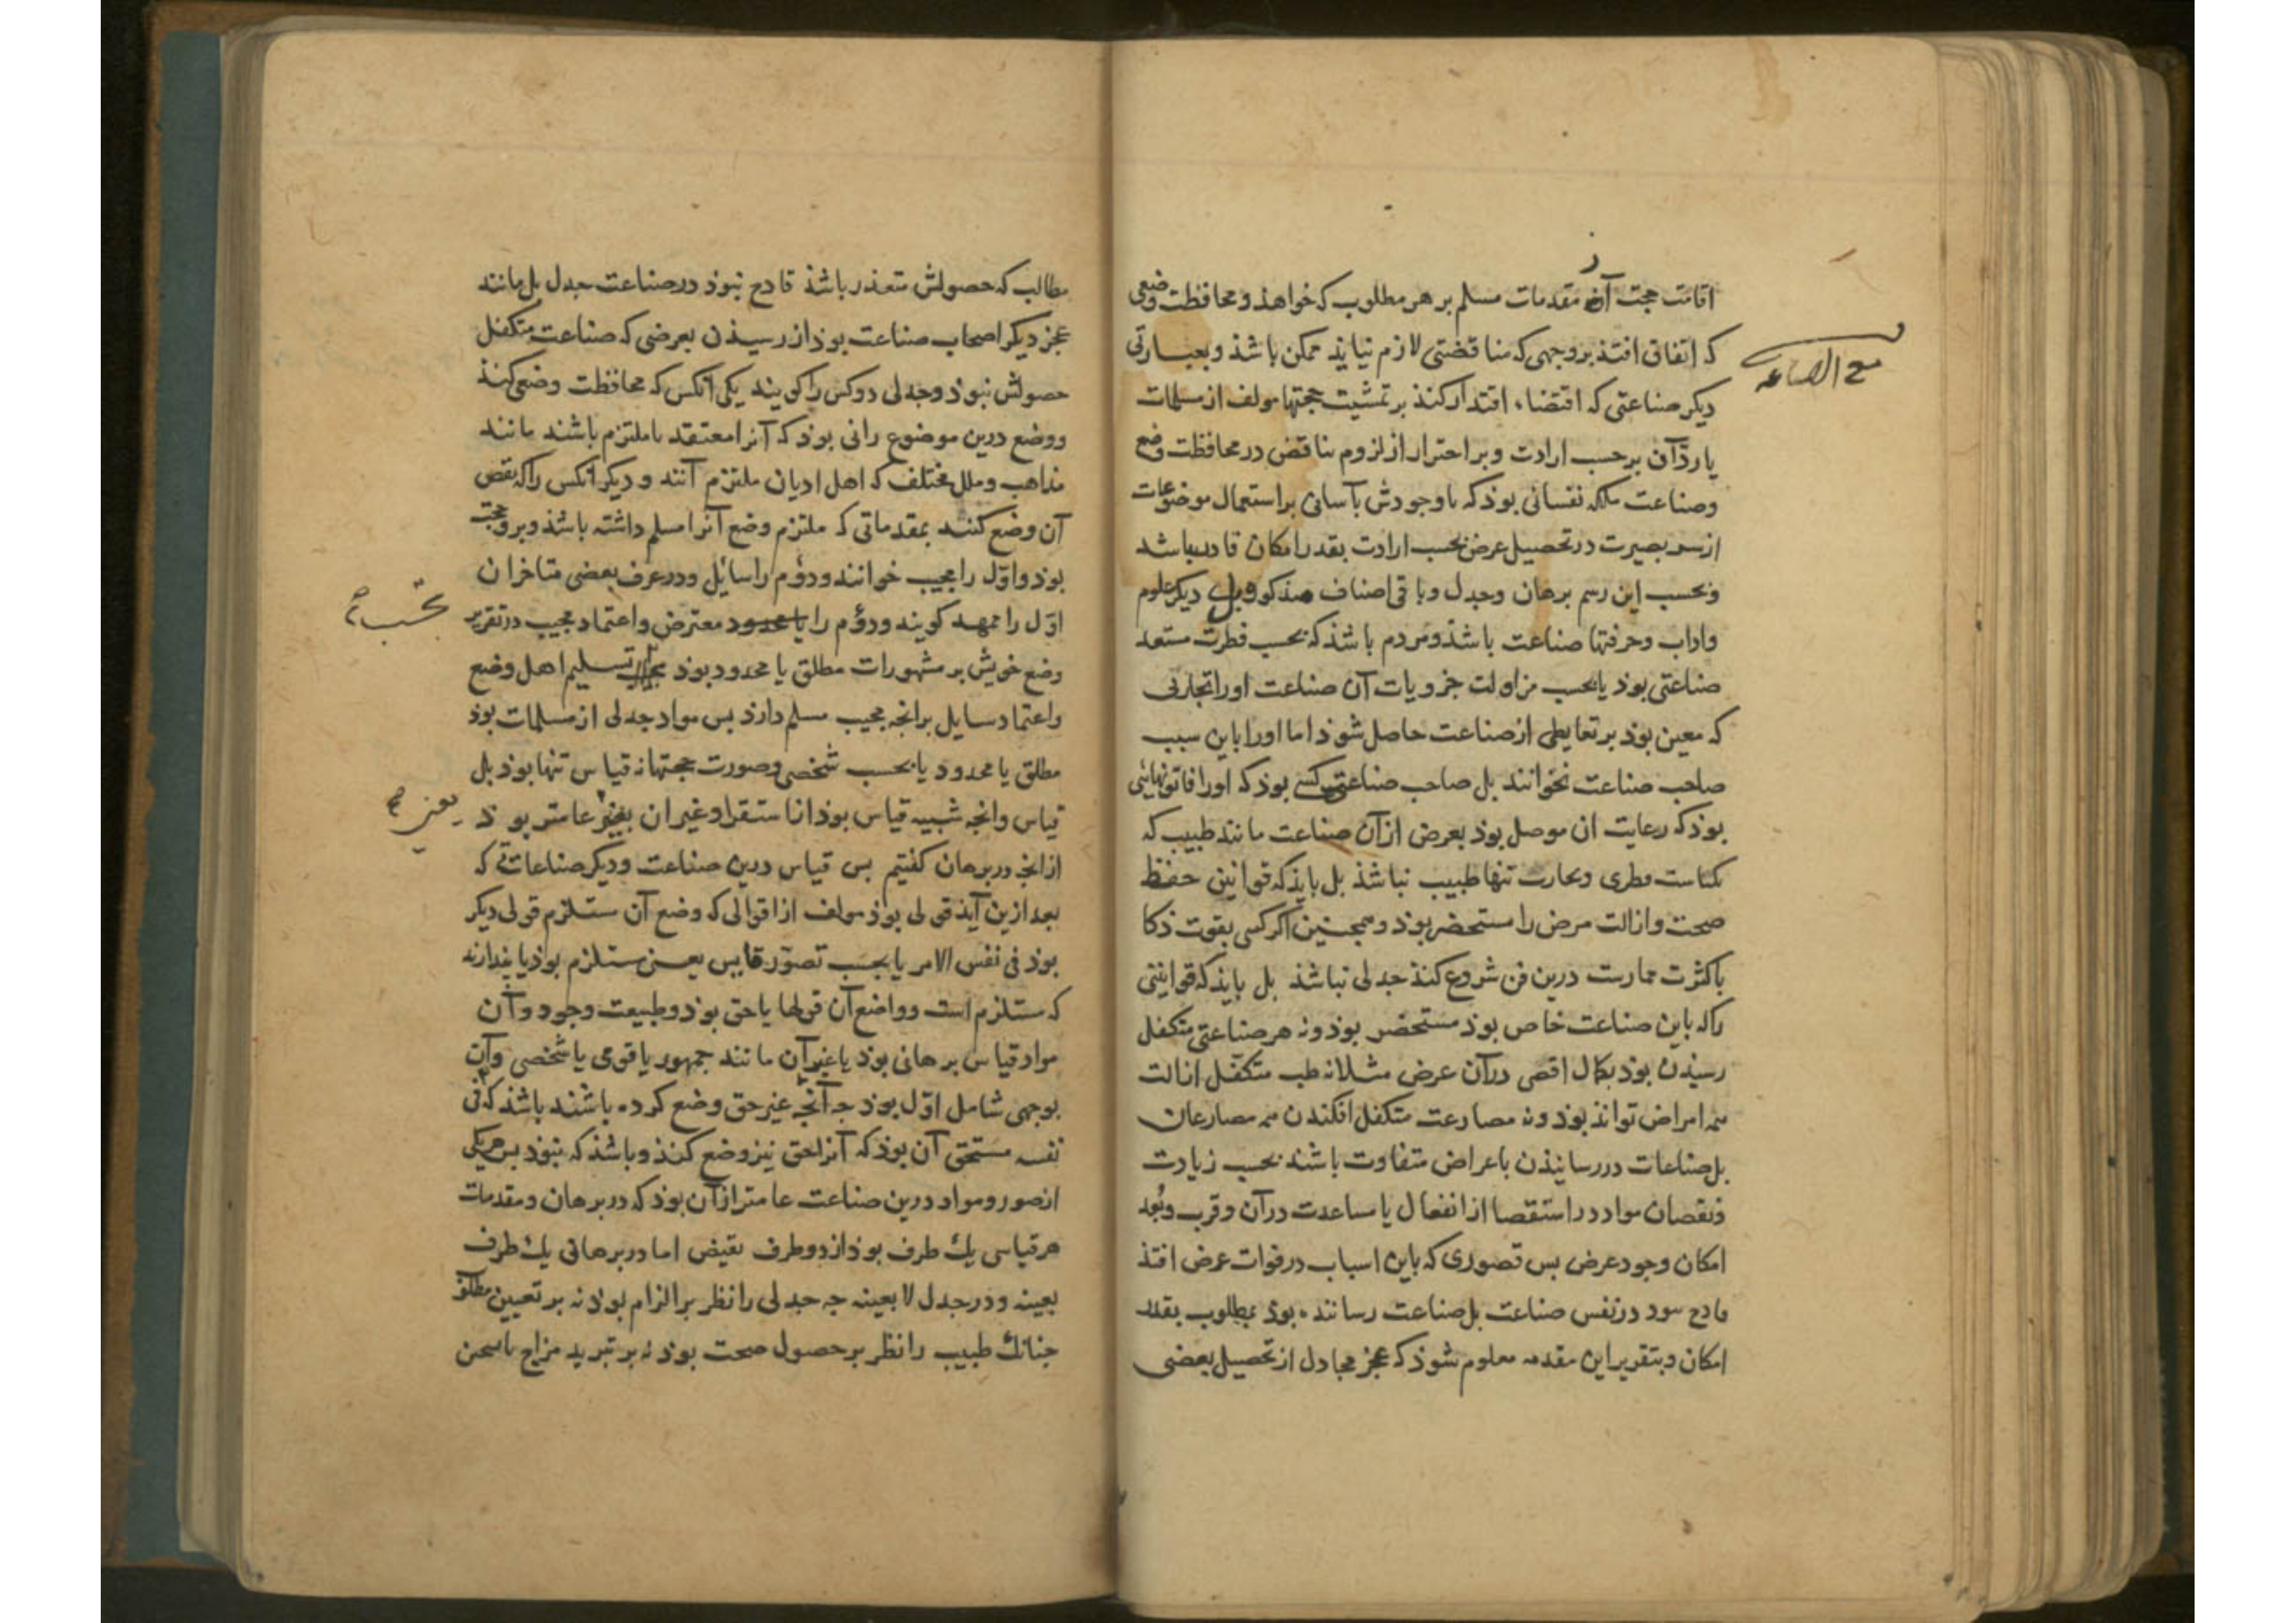 اقامت حجت از مقدمات مسلم بر هر مطلوب که خواهذ و محافظت وضعی
که اتفاق افتذ بر وجهی که مناقضتی لازم نیایذ ممکن باشذ و بعبارتی
دیکر صناعتی که اقتضاء اقتدار کنذ بر تمشیت حجتها مولف از مسلمات
یا ردّ آن بر حسب ارادت و بر احتراز از لزوم تناقض در محافظت وضع
وصناعت ملکه نفسانی بوذ که با وجودش بآسانی بر استعمال موضوعات
از سر بصیرت در تحصیل غرض بحسب ارادت بقدر امکان قادر باشد
و بحسب این رسم برهان و جدل و باقی اصناف مذکور و دیکر علوم
واداب وحرفتها صناعت باشذ و مردم باشذ که بحسب فطرت مستعد
صناعتی بوذ یا بحسب مزاولت جزویات آن صناعت او را تجاربی
که معین بوذ بر تعاطی از صناعت حاصل شوذ اما او را باین سبب
صاحب صناعت نخوانند بل صاحب صناعت کسی بوذ که او را قانونهائی
بوذ که رعایت ان موصل بوذ بغرض از آن صناعت مانند طبیب که
بکیاست فطری و تجارت تنها طبیب نباشذ بل بایذ که قوانین حفظ
صحت و ازالت مرض را مستحضر بوذ و همجنین اکر کسی بقوت ذکا
با کثرت ممارست درین فن شروع کنذ جدلی نباشذ بل بایذ که قوانینی
را که باین صناعت خاص بوذ مستحضر بوذ و نه هر صناعتی متکفل
رسیذن بوذ بکمال اقصی در آن غرض مثلا نه طب متکفل ازالت
همه امراض تواند بوذ و نه مصارعت متکفل افکندن همه مصارعان
بل صناعات در رسانیذن باغراض متفاوت باشند بحسب زیادت
و نقصان مواد در استقصا از انفعال یا مساعدت در آن و قرب و بُعد
امکان وجود غرض بس قصوری که باین اسباب در فوات غرض افتذ
قادح نبود در نفس صناعت بل صناعت رسانند بوذ بمطلوب بقدر
امکان و بتقریر این مقدمه معلوم شوذ که عجز مجادل از تحصیل بعضی
مطالب که حصولش متعذر باشذ قادح نبوذ در صناعت جدل بل مانند
عجز دیکر اصحاب صناعت بوذ از رسیذن بغرضی که صناعت متکفل
حصولش نبوذ و جدلی دو کس را کویند یکی آنکس که محافظت وضعی کنذ
و وضع درین موضوع رائی بوذ که آنرا معتقد یا ملتزم باشند مانند
مذاهب و ملل مختلف که اهل ادیان ملتزم آنند و دیکر آنکس را که نقض
آن وضع کنند بمقدماتی که ملتزم وضع آنرا مسلم داشته باشذ و برو حجت
بوذ و اوّل را مجیب خوانند و دؤم را سائل و در عرف بعضی متاخران
اوّل را ممهد کویند و دوّم را معترض و اعتماد مجیب در تقریر
بحسب
وضع خویش بر مشهورات مطلق یا محدود بوذ تسلیم اهل وضع
و اعتماد سایل بر انجه مجیب مسلم دارذ بس مواد جدلی از مسلمات بوذ
مطلق یا محدود یا بحسب شخصی و صورت حجتها نه قیاس تنها بوذ بل
قیاس و انجه شبیه قیاس بوذ از استقرا و غیر ان یعنی عامتر بوذ
یعنی
از انجه در برهان کفتیم بس قیاس درین صناعت و دیکر صناعاتی که
بعد ازین آیذ قولی بوذ مولف از اقوالی که وضع آن مستلزم قولی دیکر
بوذ فی نفس الامر یا بحسب تصوّر قایس یعنی مستلزم بوذ یا بندارند
که مستلزم است و واضع آن قولها یا حق بوذ و طبیعت وجود و آن
مواد قیاس برهانی بوذ یا غیر آن مانند جمهور یا قومی یا شخصی و آن
بوجهی شامل اوّل بوذ جه آنجه غیر حق وضع کرده باشند باشذ که فی
نفسه مستحق آن بوذ که آنرا حق نیز وضع کنذ و باشذ که نبوذ بس هر یکی
از صور و مواد درین صناعت عامتر از آن بوذ که در برهان و مقدمات
هر قیاسی یك طرف بوذ از دو طرف نقیض اما در برهانی یك طرف
بعینه و در جدل لا بعینه جه جدلی را نظر بر الزام بوذ نه بر تعیین مطلوب
جنانك طبیب را نظر بر حصول صحت بوذ نه بر تبرید مزاج یا تسخین